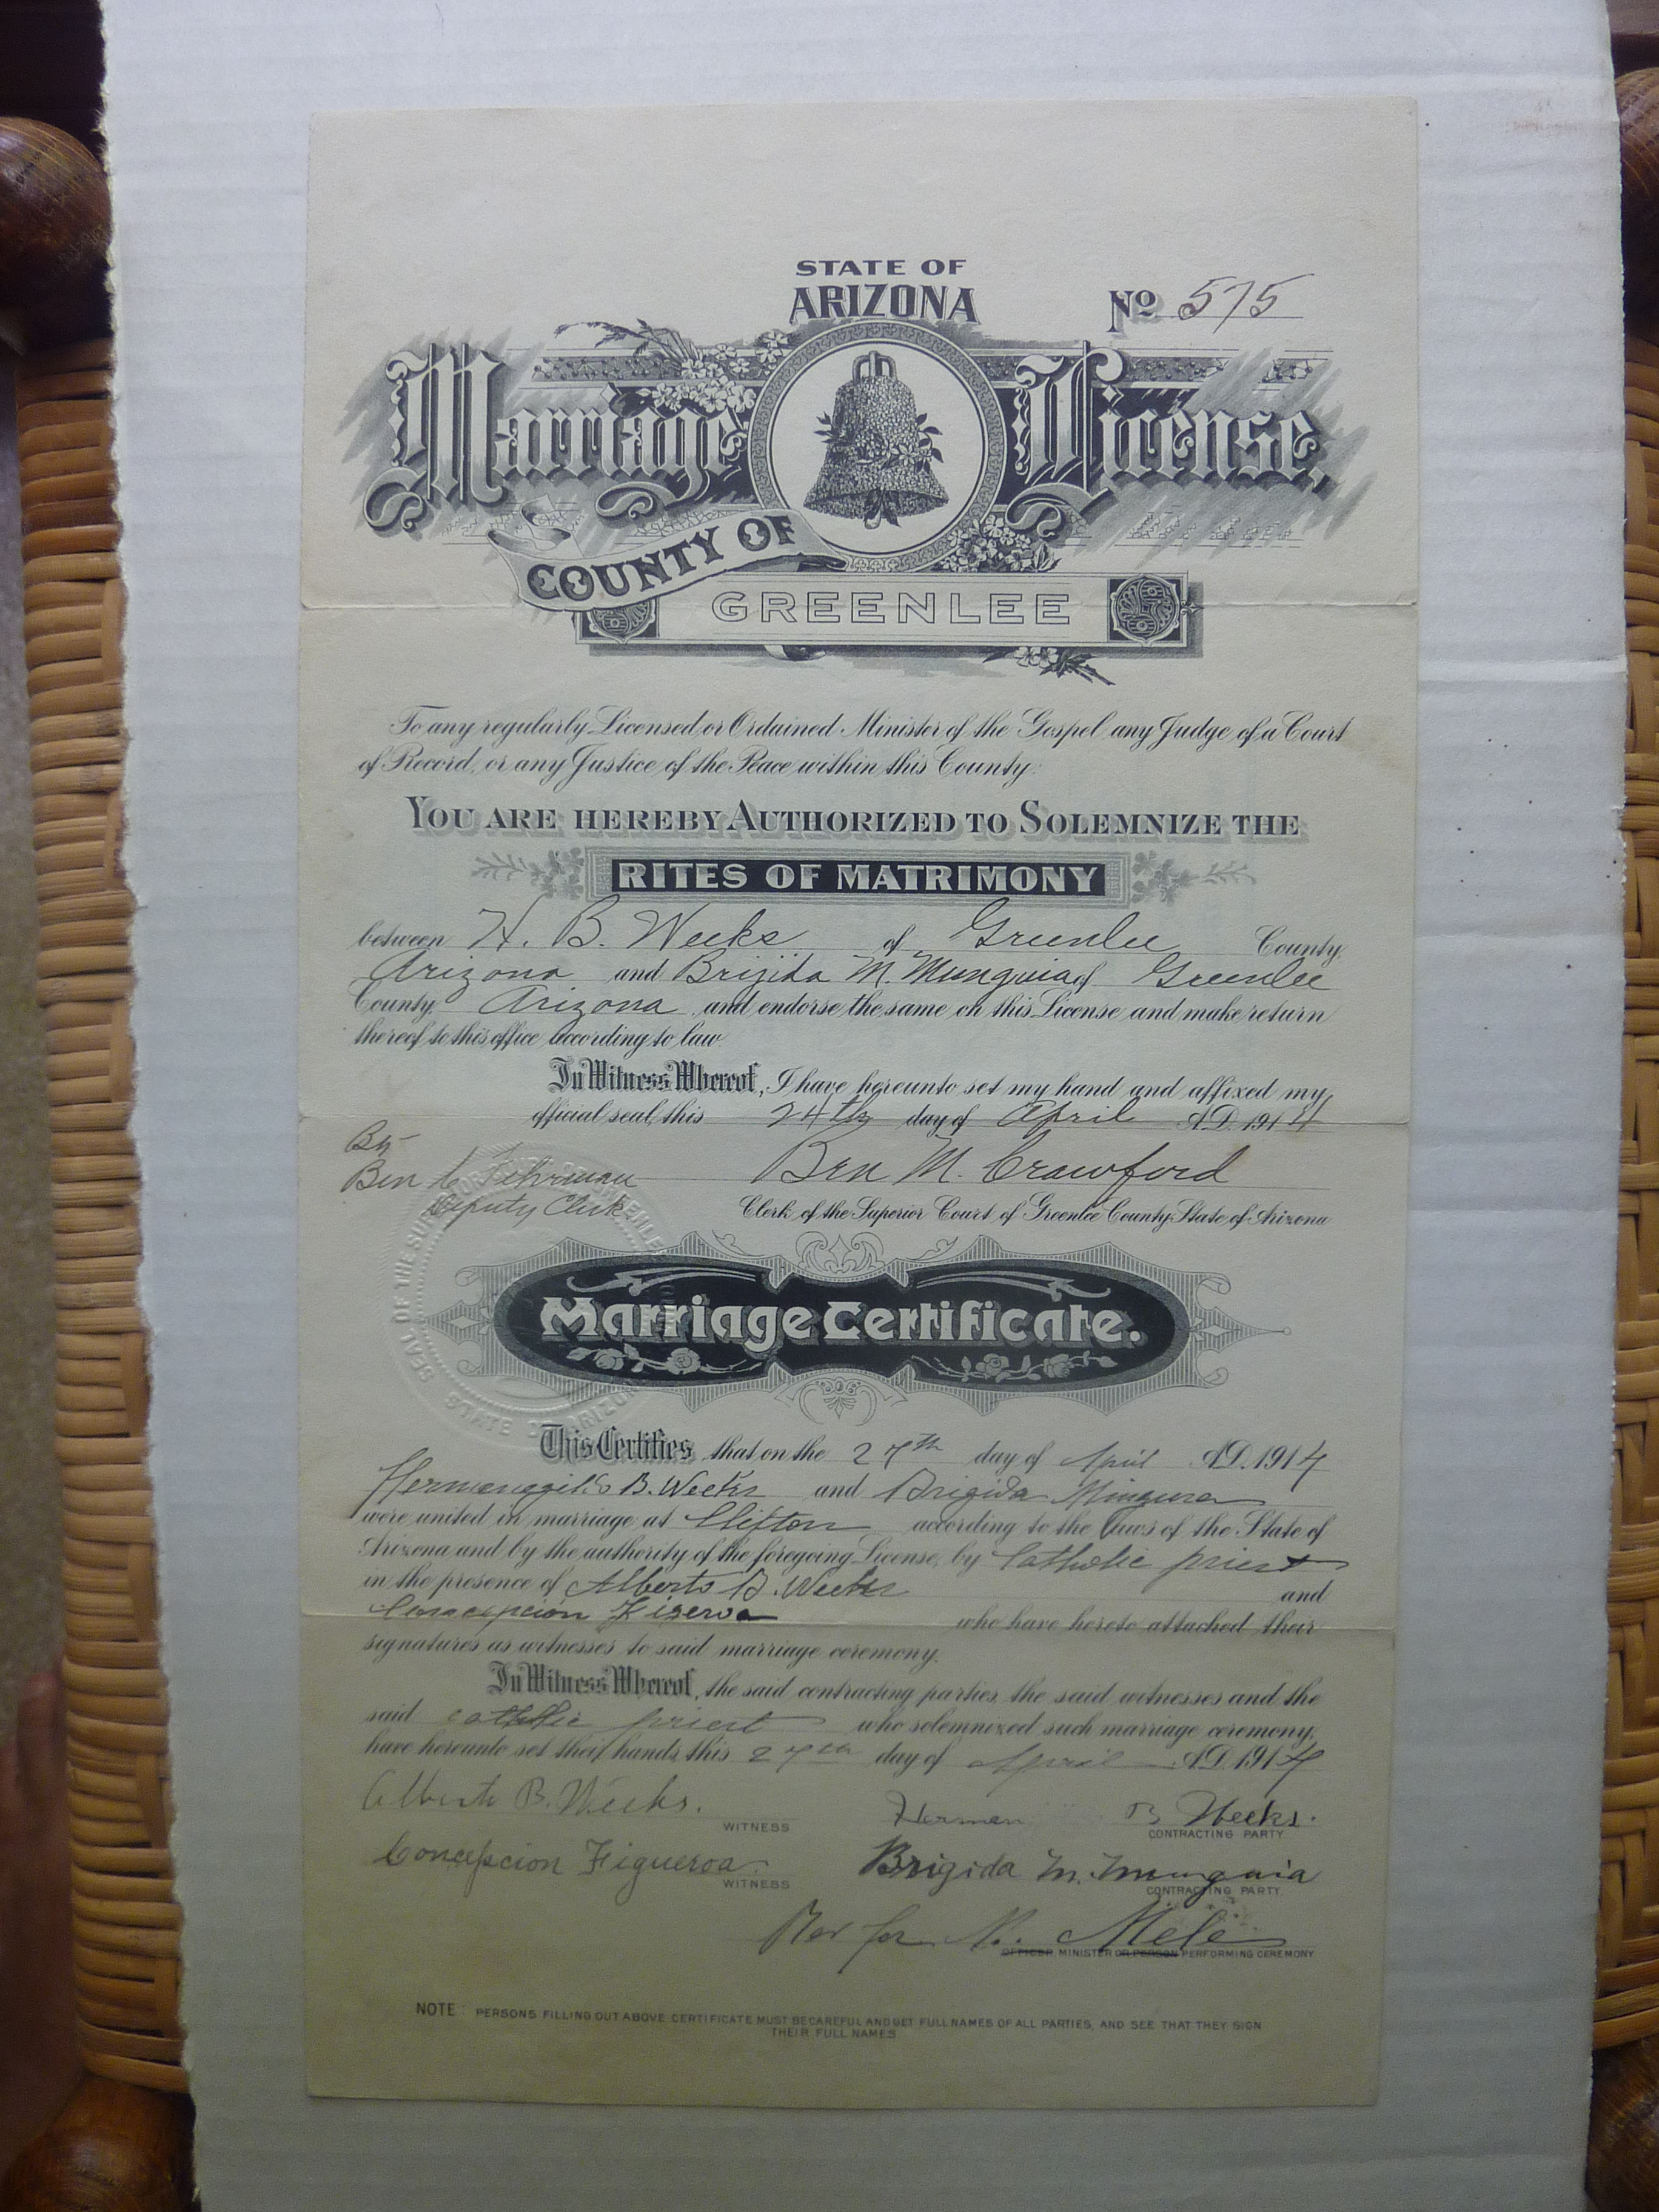 STATE OF
ARIZONA
No 575
Marriage License.
COUNTY OF
GREENLEE
To any regularly Licensed or Ordained Minister of the Gospel any Judge of a Court
of Record, or any Justice of the Peace within this County:
YOU ARE HEREBY AUTHORIZED TO SOLEMNIZE THE
RITES OF MATRIMONY
between H. B. Weeks of Greenlee County,
Arizona and Brijida M. Munguia of Greenlee
County, Arizona and endorse the same on this License and make return
thereof to this office according to law.
In Witness Whereof, I have hereunto set my hand and affixed my
official seal, this 24th day of April A.D. 1914
By
Ben C Fehrman Ben M. Crawford
Deputy Clerk Clerk of the Superior Court of Greenlee County State of Arizona
SEAL OF THE STATE OF ARIZONA
Marriage Certificate.
This Certifies that on the 27th day of April A.D. 1914
B. Weeks and Brigida
were united in marriage at Clifton according to the Laws of the State of
Arizona and by the authority of the foregoing License, by Catholic priest
in the presence of Alberto B. Weeks and
who have hereto attached their
signatures as witnesses to said marriage ceremony.
In Witness Whereof, the said contracting parties, the said witnesses and the
said catholic priest who solemnized such marriage ceremony,
have hereunto set their hands this 27th day of April A.D. 1914
Alberto B. Weeks. Herman B Weeks.
WITNESS CONTRACTING PARTY.
Concepcion Figueroa. Brigida M. Munguia
WITNESS CONTRACTING PARTY.
OFFICER MINISTER OR PERSON PERFORMING CEREMONY
NOTE: PERSONS FILLING OUT ABOVE CERTIFICATE MUST BE CAREFUL AND GET FULL NAMES OF ALL PARTIES, AND SEE THAT THEY SIGN
THEIR FULL NAMES